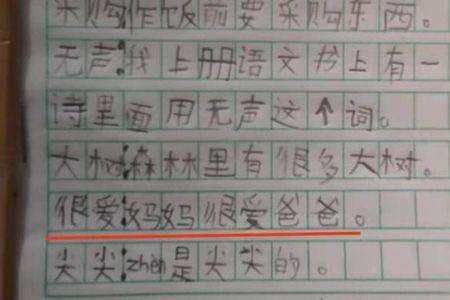 采购:作饭前要采购东西。
无声:我上册语文书上有一
诗里面用无声这个词。
大树:森林里有很多大树。
很爱:妈妈很爱爸爸。
尖尖:zhēn是尖尖的。